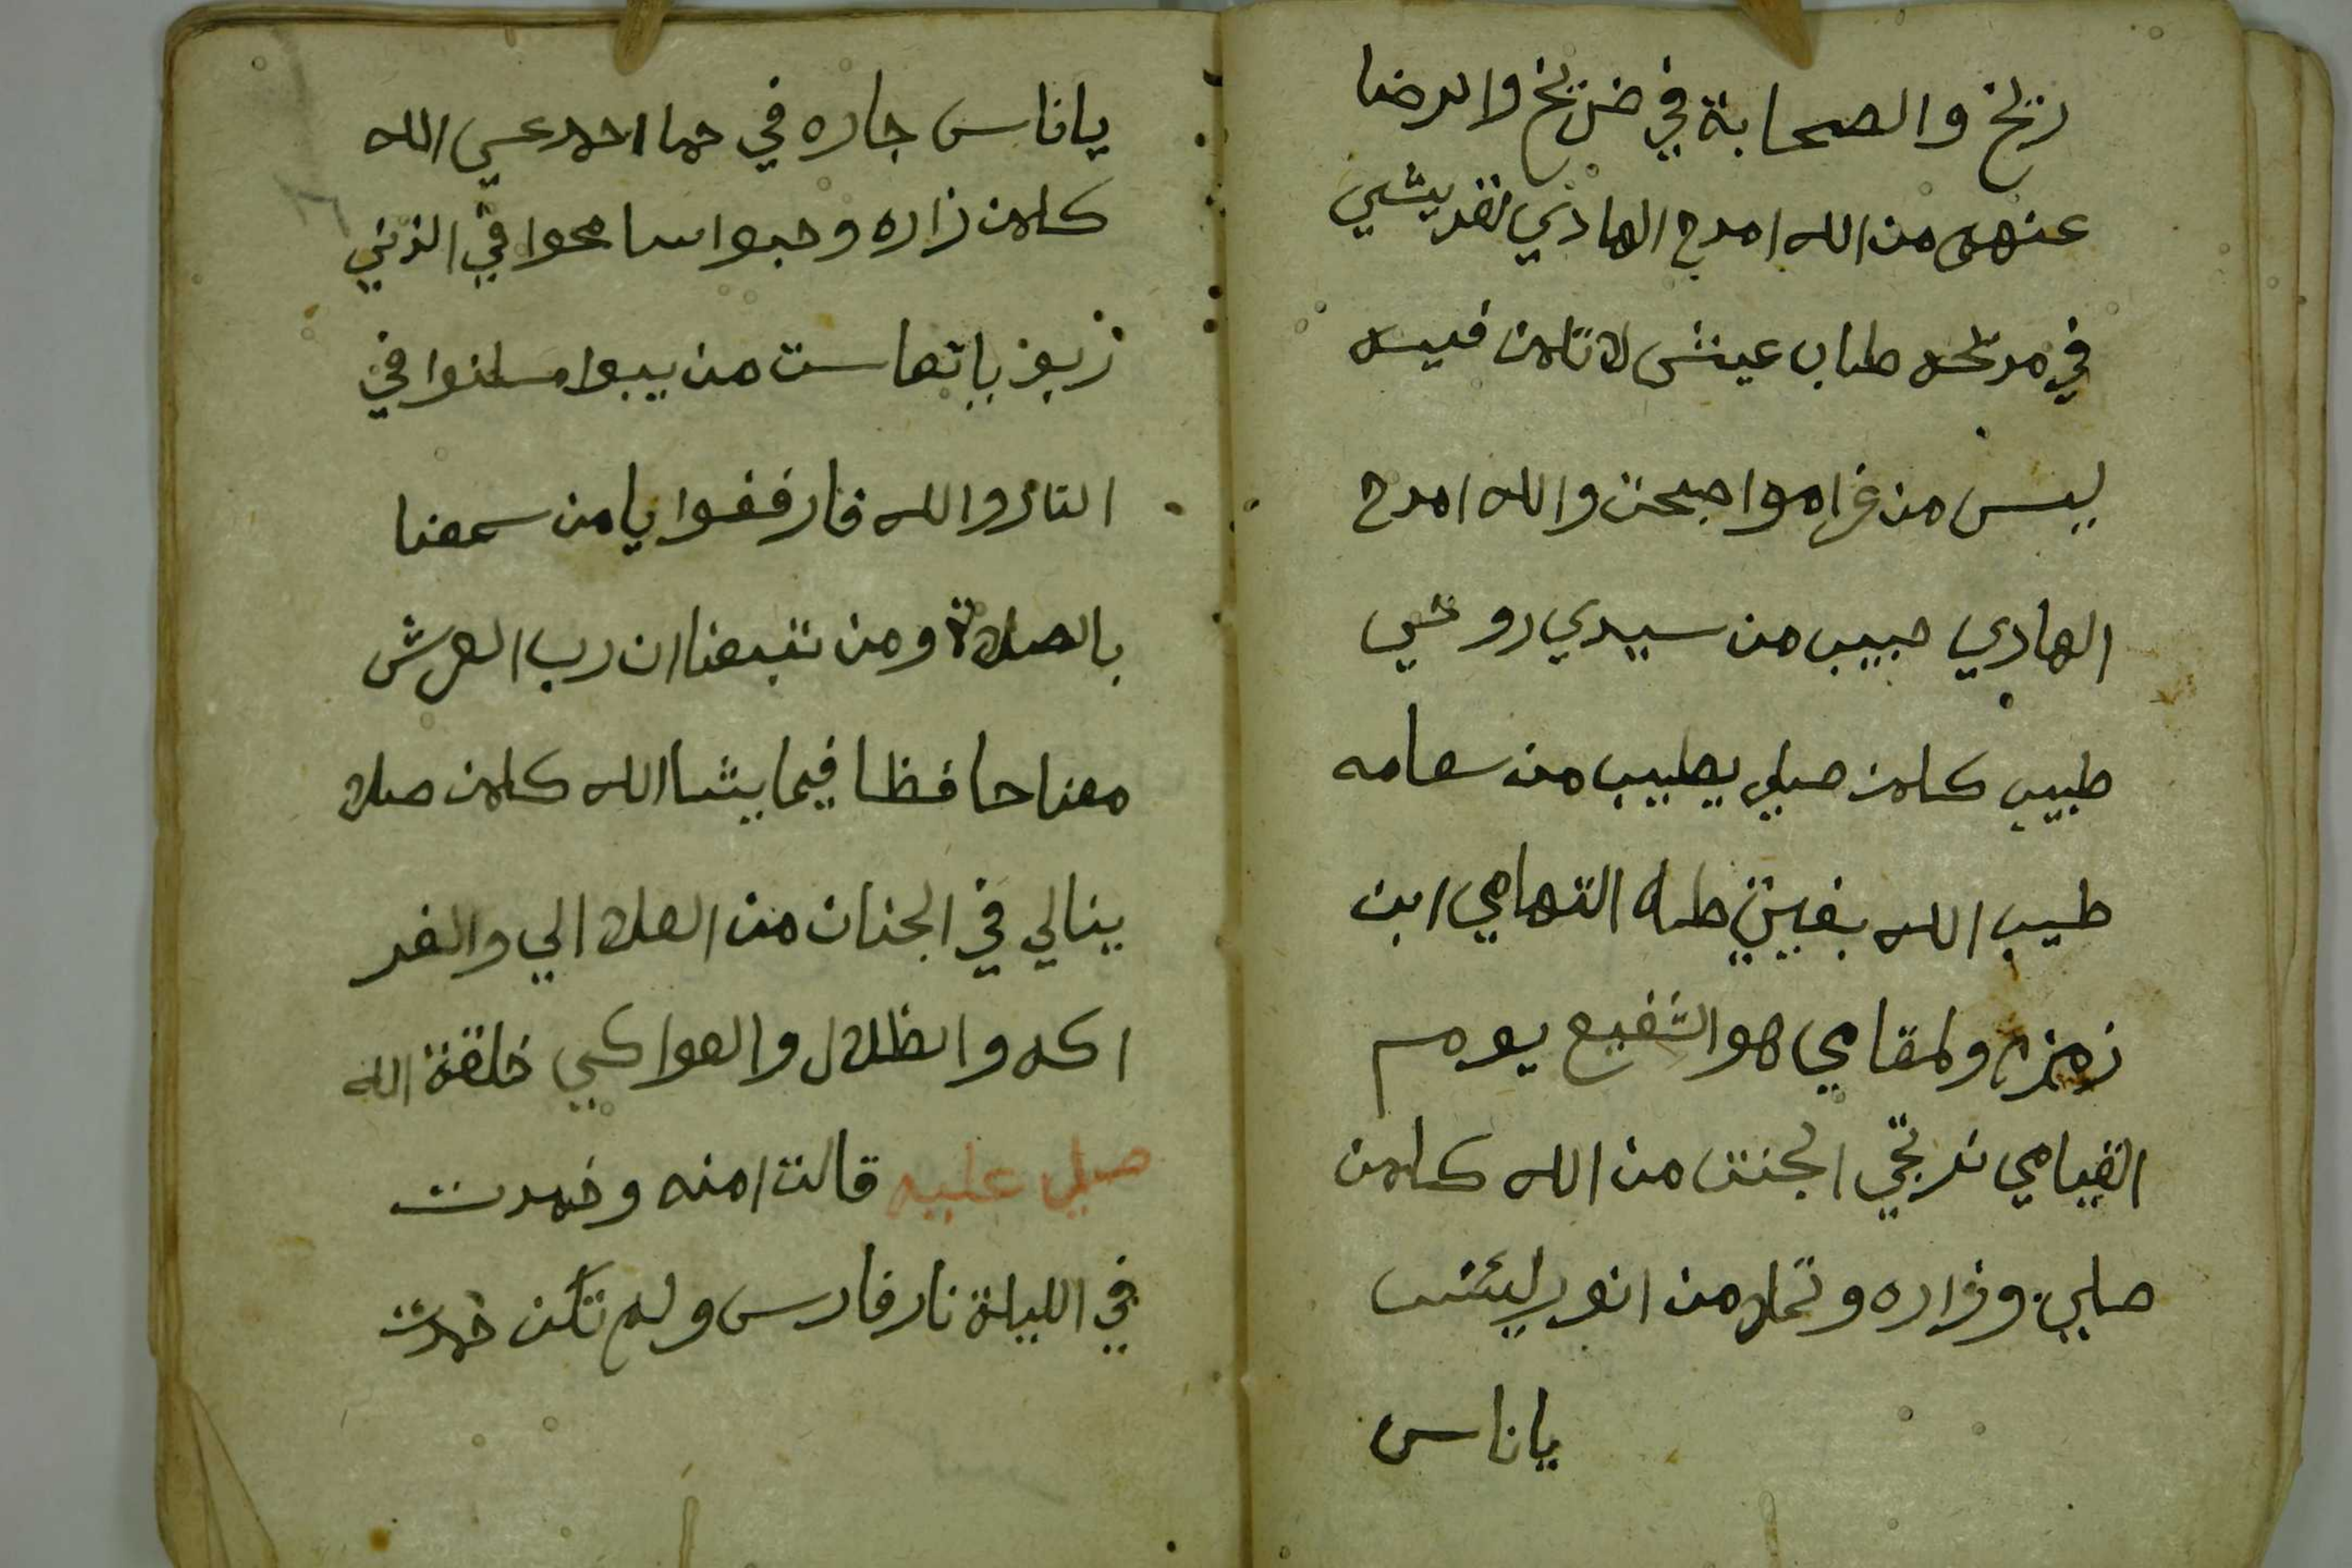 ريخ والصحابة في ضريخ والرضا
عنهم من الله امدح الهادي القريشي
في مدحه طاب عيشى لاتلمن فيسه
ليس من غرامو اصحن والله امدح
الهادي حبيب من سيدي روحي
طبيب كلمن صلي يطيب من سعامه
طيب الله بغيتي طه التهامي ابن
زمزم ولمقامي هو الشفيع يوم
القيامي ندتجي الجنن من الله كلمن
صلي وزاره وتملا من انو
ياناس
ياناس جاره في حما احمد عسى الله
كلمن زاره وحبوا سامحوا في الذي
زيوز باتها ست من يبوا مسلنوا في
النار والله فارفقوا يا من سمعنا
بالصلاة ومن تتبعنا ان رب العرش
معنا حافظا فيما يشا الله كلمن صلا
ينالي في الجنان من العلا الي والفر
اكه والظلال والعواكي خلقة الله
صلي عليه قالت امنه وخمدت
في الليلة نار فارس ولم تكن خمدت